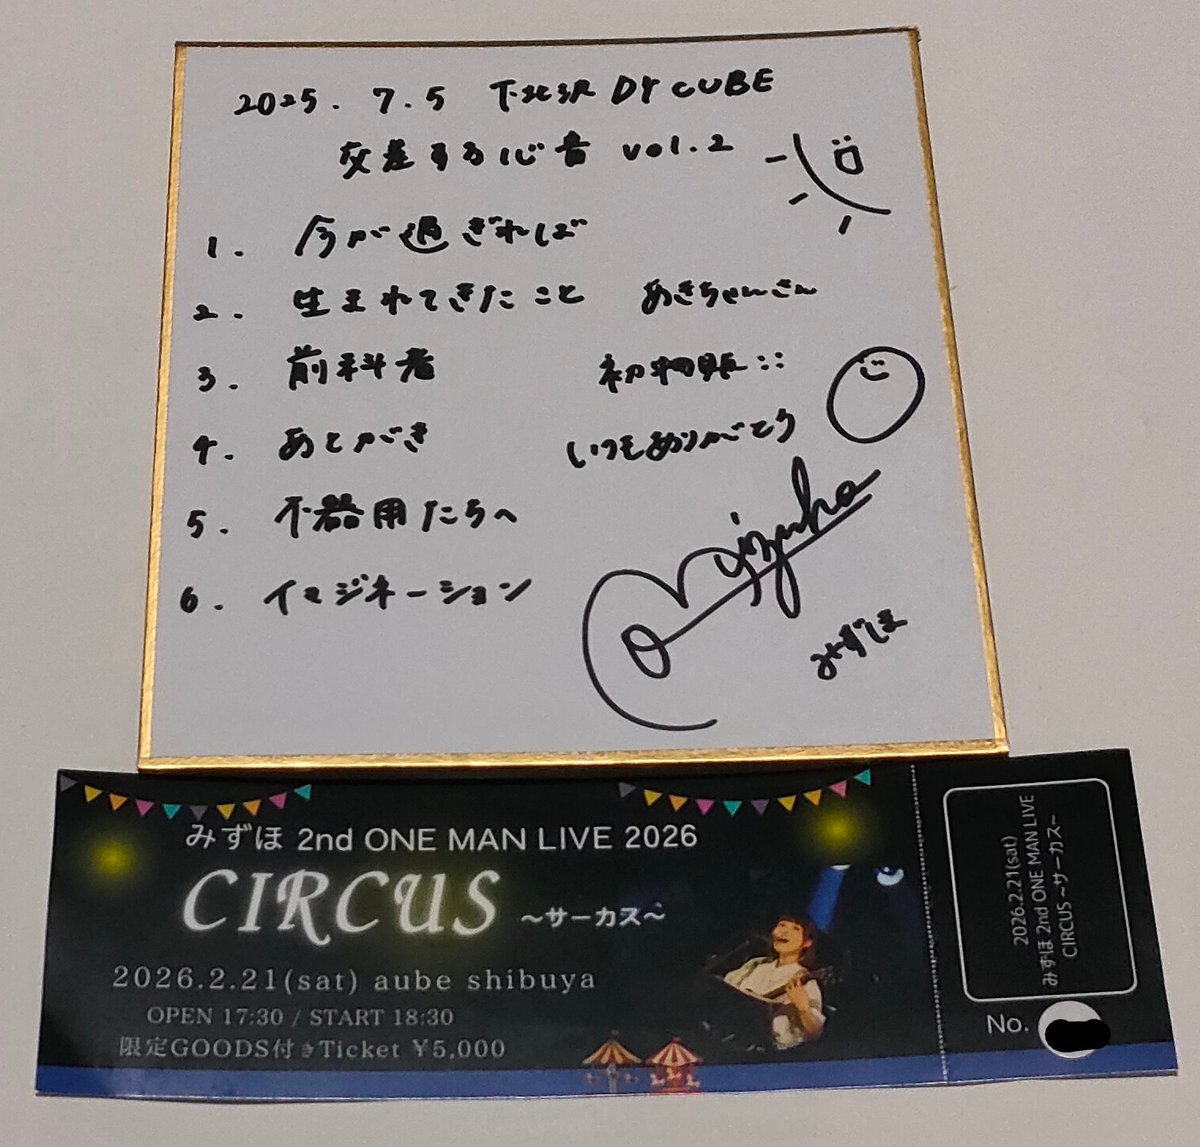 2025.7.5 下北沢 DY CUBE
交差する心音 vol.2
1. 今が過ぎれば
2. 生まれてきたこと
あきちゃんさん
3. 前科者
初物販::
4. あとがき
いつもありがとう
5. 不器用たちへ
6. イマジネーション
Mizuho
みずほ
みずほ 2nd ONE MAN LIVE 2026
CIRCUS ～サーカス～
2026.2.21(sat) aube shibuya
OPEN 17:30 / START 18:30
限定GOODS付きTicket ¥5,000
2026.2.21(sat)
みずほ 2nd ONE MAN LIVE
CIRCUS ～サーカス～
No.